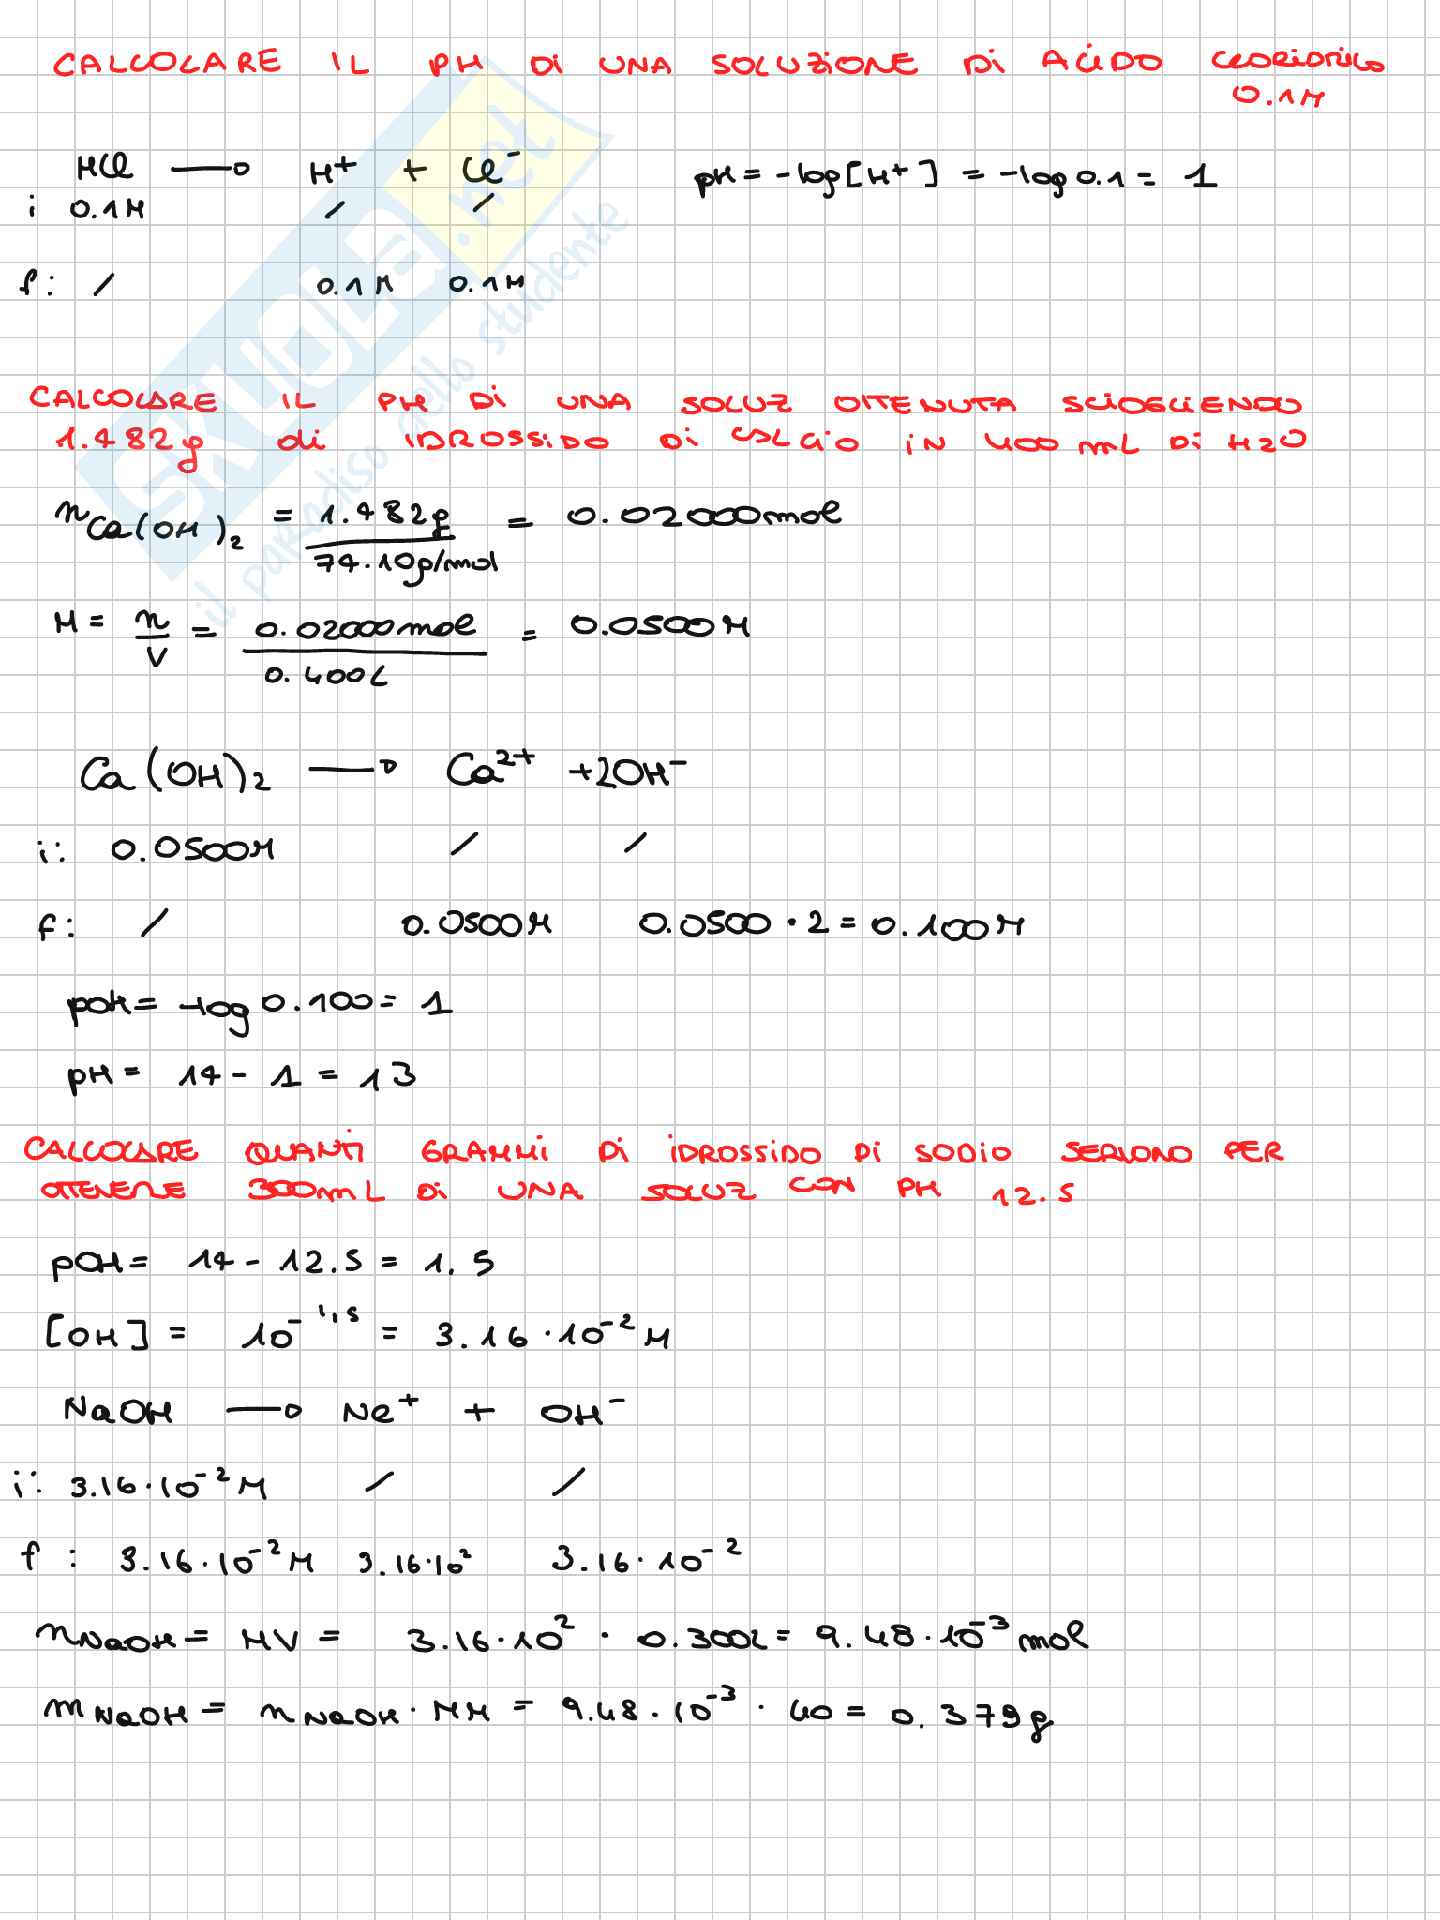 CALCOLARE IL PH Di UNA SOLUZIONE Di ACiDO CLORIDRICO
0.1M
HCl → H⁺ + Cl⁻ pH = -log[H⁺] = -log 0.1 = 1
i 0.1M / /
f: / 0.1M 0.1M
CALCOLARE IL PH Di UNA SOLUZ OTTENUTA SCIOGLIENDO
1.482g di IDROSSIDO Di CALCiO iN 400 mL Di H2O
n Ca(OH)₂ = 1.482g / 74.10g/mol = 0.02000mol
M = n / V = 0.02000mol / 0.400L = 0.0500M
Ca(OH)₂ → Ca²⁺ + 2OH⁻
i: 0.0500M / /
f: / 0.0500M 0.0500 · 2 = 0.100M
pOH = -log 0.100 = 1
pH = 14 - 1 = 13
CALCOLARE QUANTi GRAMMi Di iDROSSIDO Di SODiO SERVONO PER
OTTENERE 300mL Di UNA SOLUZ CON PH 12.5
pOH = 14 - 12.5 = 1.5
[OH] = 10⁻¹,⁵ = 3.16 · 10⁻² M
NaOH → Na⁺ + OH⁻
i: 3.16 · 10⁻² M / /
f : 3.16 · 10⁻² M 3.16 · 10² 3.16 · 10⁻²
n NaOH = MV = 3.16 · 10² · 0.300L = 9.48 · 10⁻³ mol
m NaOH = n NaOH · MM = 9.48 · 10⁻³ · 40 = 0.379g
SKUOLA.net
il paradiso dello studente